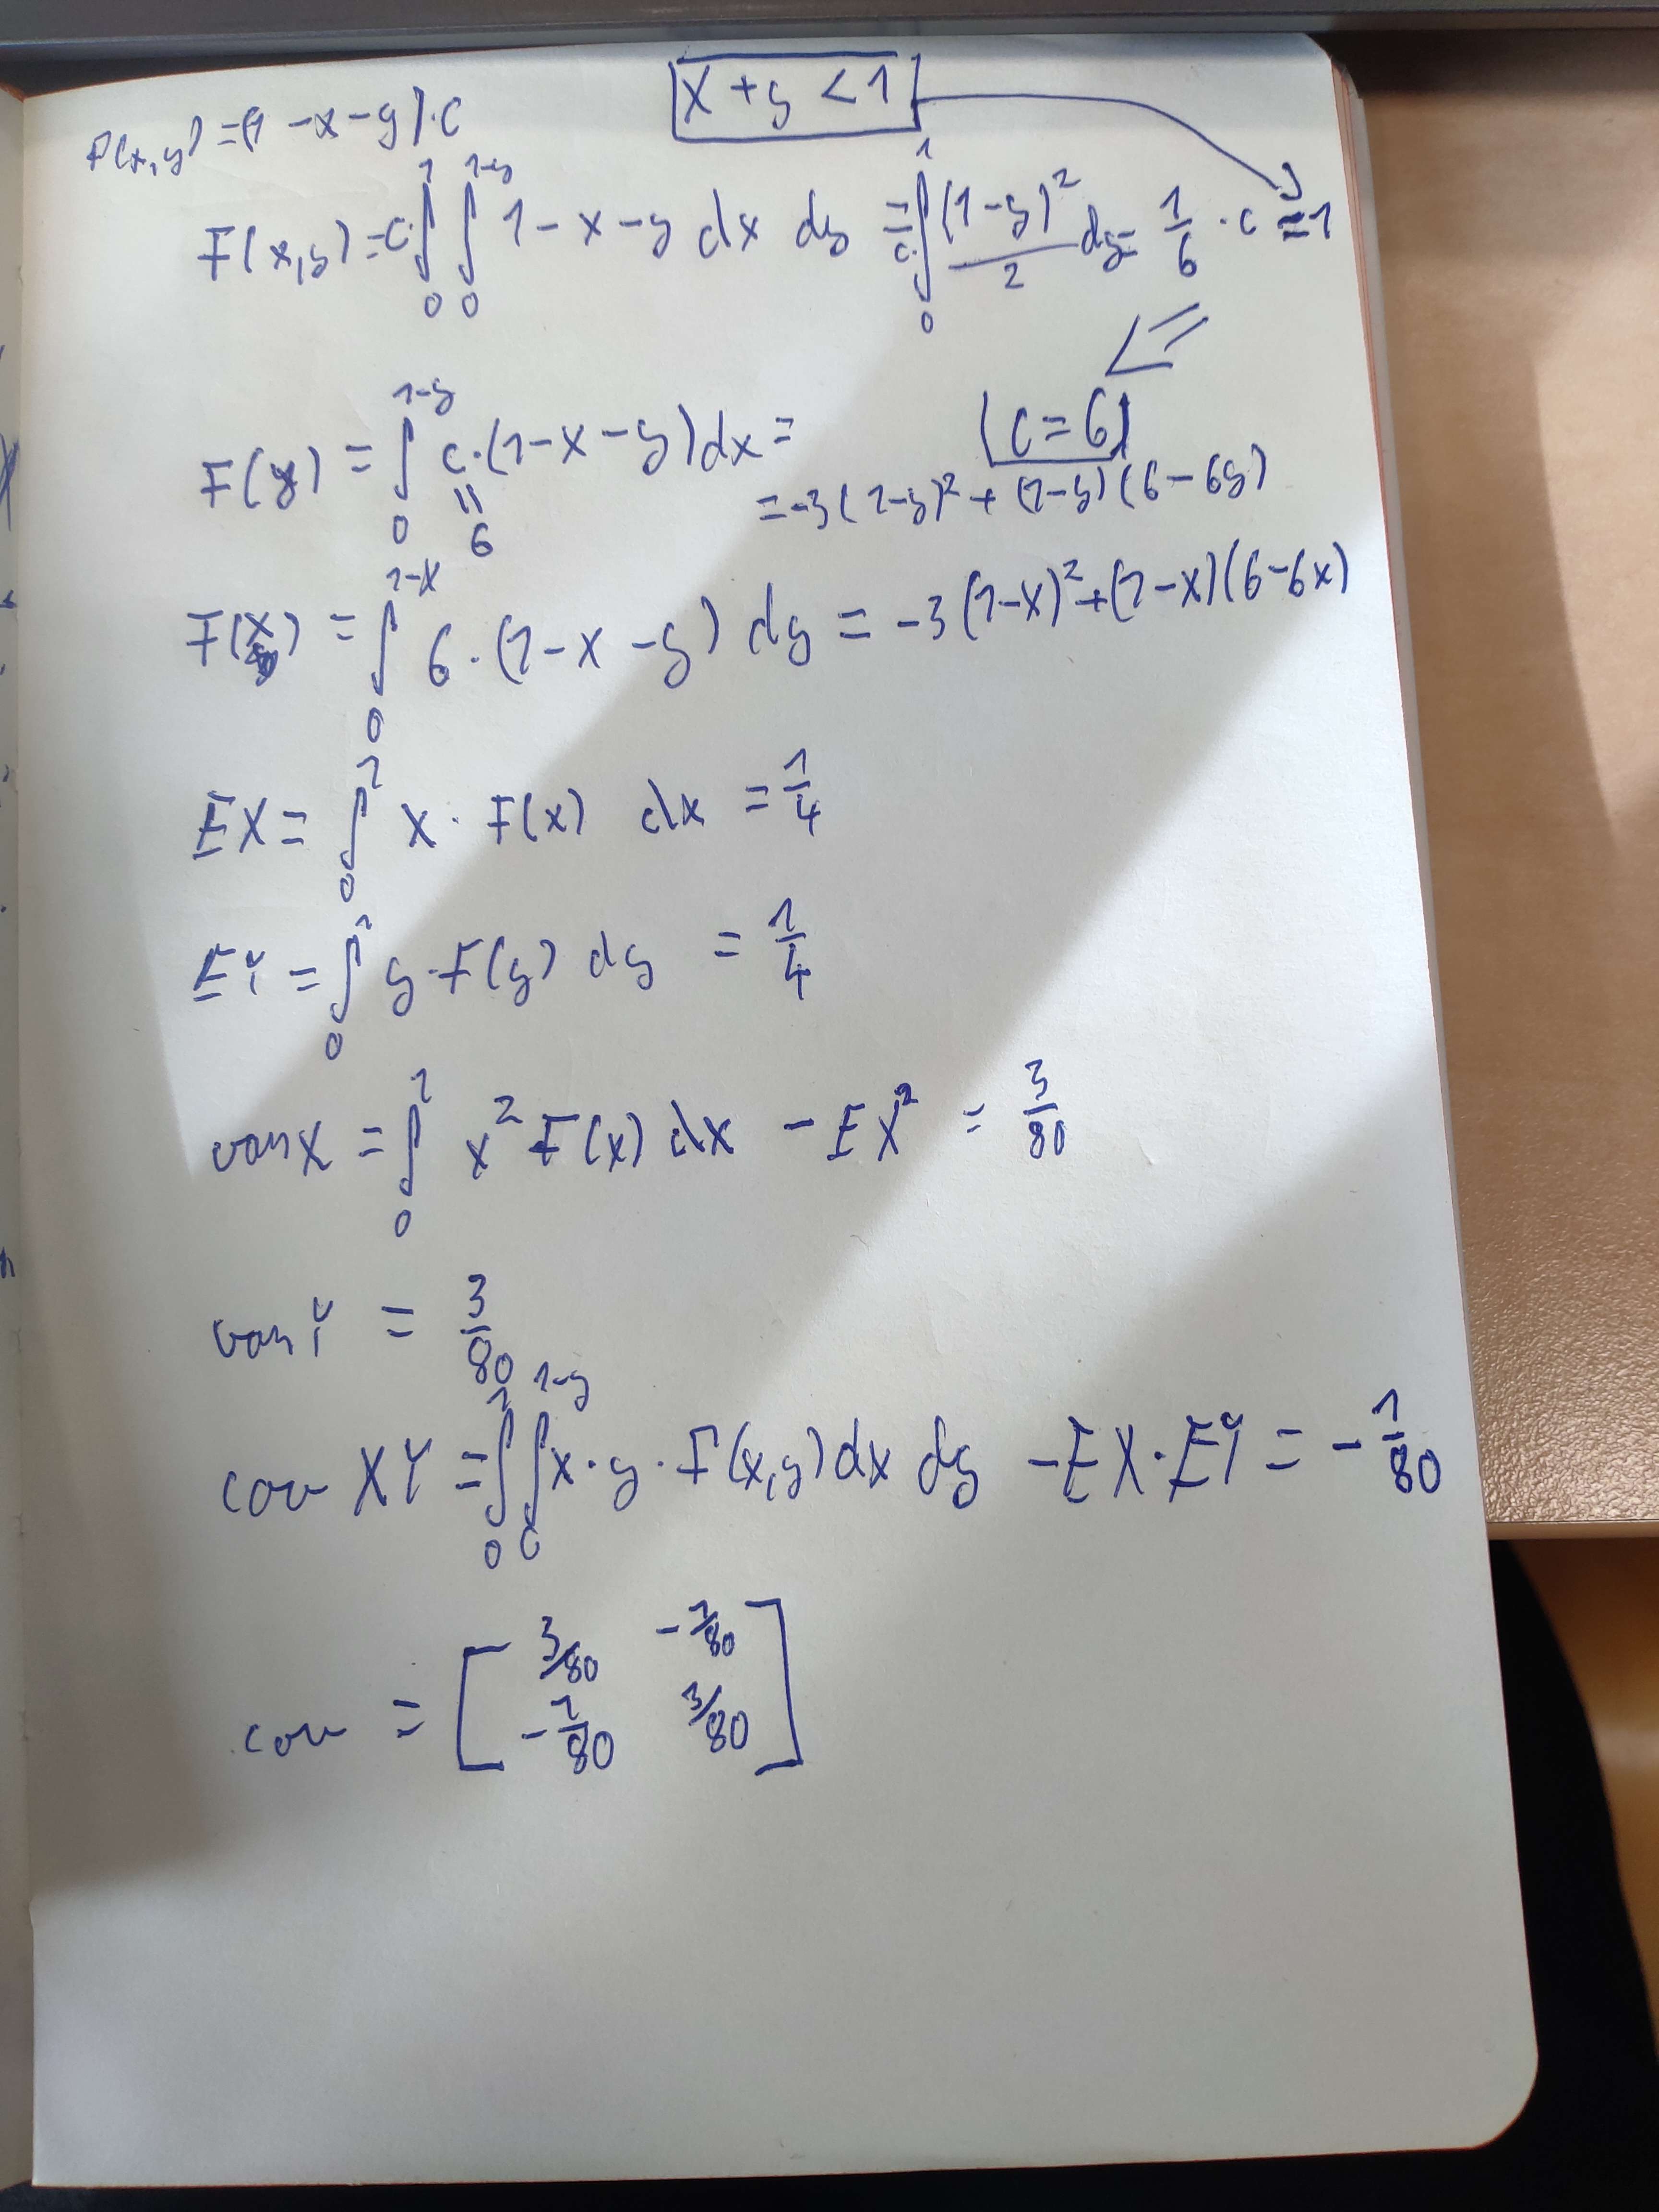 x + y < 1
f(x,y) = (1 - x - y) · c
F(x,y) = c · ∫₀¹ ∫₀^{1-y} 1 - x - y dx dy = c · ∫₀¹ (1-y)²/2 dy = 1/6 · c = 1
c = 6
F(y) = ∫₀^{1-y} c · (1 - x - y) dx =
= -3(1-y)² + (1-y)(6-6y)
6
F(x) = ∫₀^{1-x} 6 · (1 - x - y) dy = -3(1-x)² + (1-x)(6-6x)
EX = ∫₀¹ x · F(x) dx = 1/4
EY = ∫₀¹ y · F(y) dy = 1/4
var X = ∫₀¹ x² F(x) dx - EX² = 3/80
var Y = 3/80
cov XY = ∫₀¹ ∫₀^{1-y} x · y · F(x,y) dx dy - EX · EY = -1/80
cov = [ 3/80 -1/80
-1/80 3/80 ]